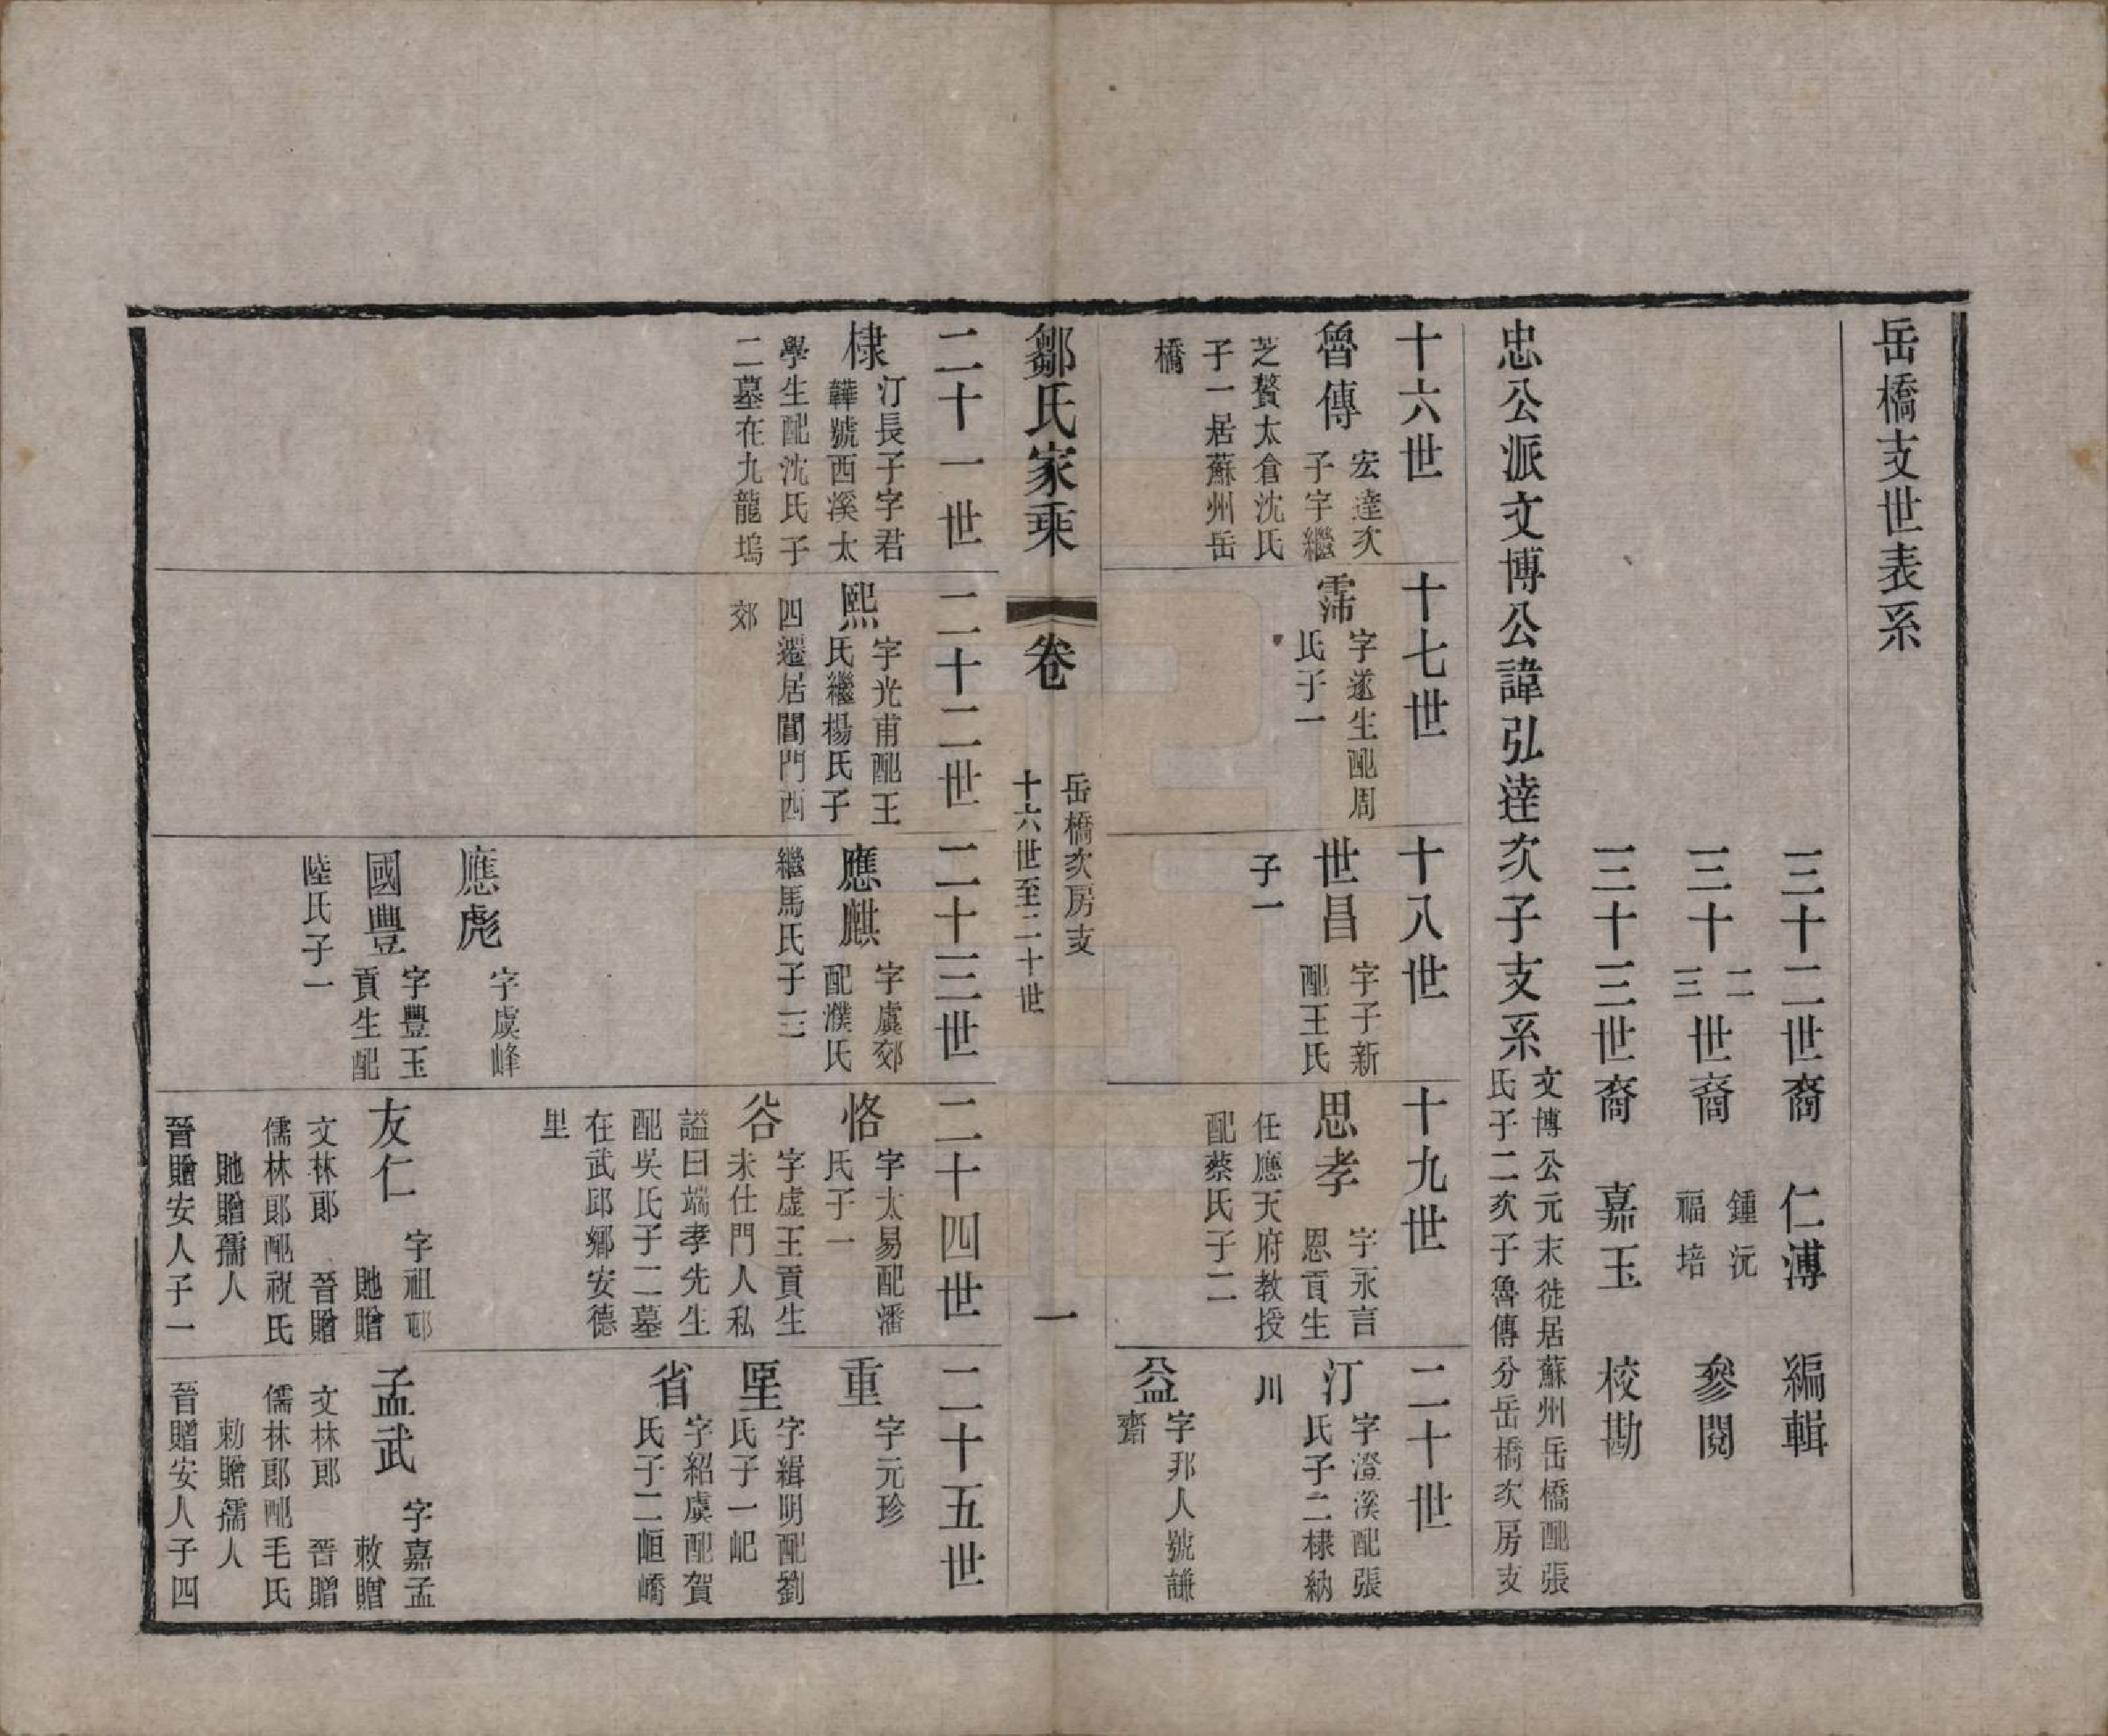 岳橋支世表系
三十二世裔 仁溥 編輯
三十二三世裔 鍾沅 福培 參閱
三十三世裔 嘉玉 校勘
忠公派文博公諱弘達次子支系
文博公元末徙居蘇州岳橋配張
氏子二次子魯傳分岳橋次房支
十六世
魯傳
宏達次
子字繼
芝贅太倉沈氏
子一居蘇州岳
橋
十七世
霈
字遂生配周
氏子一
十八世
世昌
字子新
配王氏
子一
十九世
思孝
字永言
恩貢生
任應天府教授
配蔡氏子二
二十世
汀
字澄溪配張
氏子二棣納
川
益
字邦人號謙
齋
鄒氏家乘
卷
岳橋次房支
十六世至二十世
一
二十一世
棣
汀長子字君
韡號西溪太
學生配沈氏子
二墓在九龍塢
二十二世
熙
字光甫配王
氏繼楊氏子
四遷居閶門西
郊
二十三世
應麒
字虞郊
配濮氏
繼馬氏子三
應彪
字虞峰
國豐
字豐玉
貢生配
陸氏子一
二十四世
恪
字太易配潘
氏子一
谷
字虛王貢生
未仕門人私
謚曰端孝先生
配吳氏子二墓
在武邱鄉安德
里
友仁
字祖邺
貤贈
文林郎 晉贈
儒林郎配祝氏
貤贈孺人
晉贈安人子一
二十五世
重
字元珍
垔
字緝明配劉
氏子一屺
省
字紹虞配賀
氏子二峘嶠
孟武
字嘉孟
敕贈
文林郎 晉贈
儒林郎配毛氏
勅贈孺人
晉贈安人子四